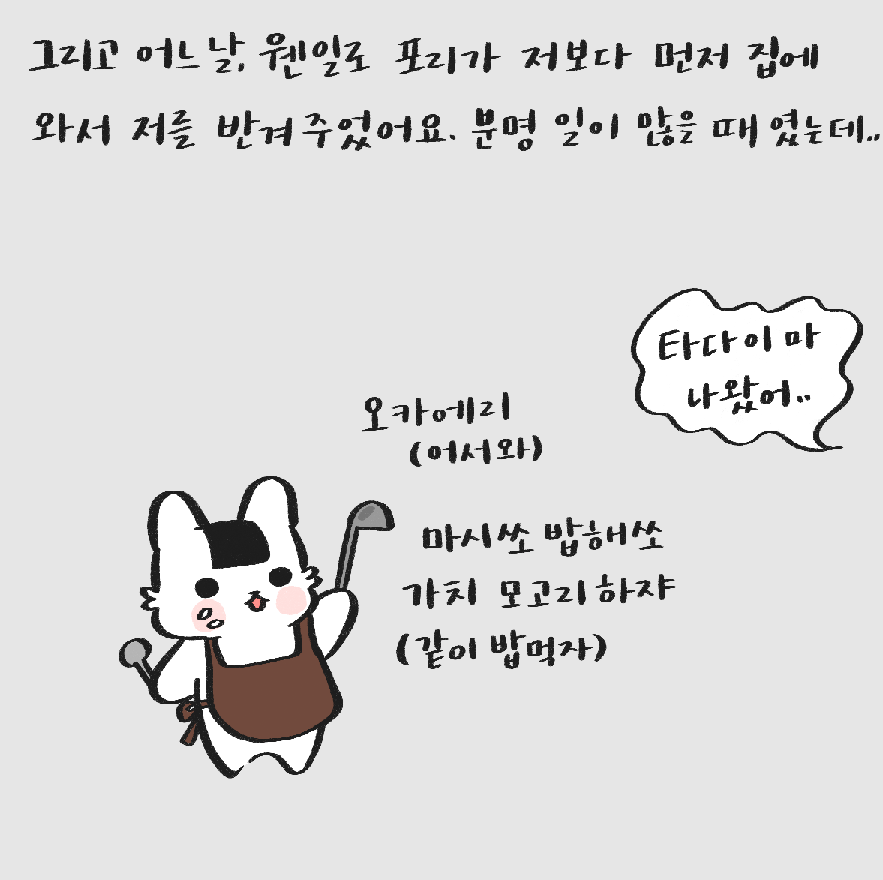 그리고 어느날, 웬일로 포리가 저보다 먼저 집에
와서 저를 반겨주었어요. 분명 일이 많을 때였는데..
타다이마
나왔어..
오카에리
(어서와)
마시쏘 밥해쏘
가치 모고리하쟈
(같이 밥먹자)